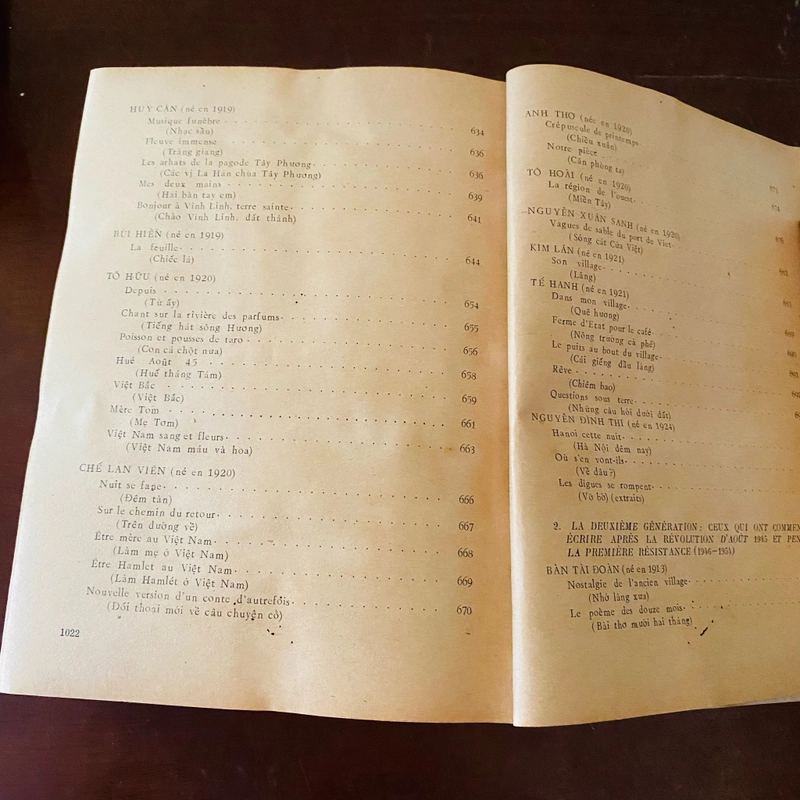 HUY CẬN (né en 1919)
Musique funèbre 634
(Nhạc sầu)
Fleuve immense 636
(Tràng giang)
Les arhats de la pagode Tây Phương 636
(Các vị La Hán chùa Tây Phương)
Mes deux mains 639
(Hai bàn tay em)
Bonjour à Vinh Linh, terre sainte 641
(Chào Vinh Linh, đất thánh)
BÙI HIỂN (né en 1919)
La feuille 644
(Chiếc lá)
TỐ HỮU (né en 1920)
Depuis 654
(Từ ấy)
Chant sur la rivière des parfums 655
(Tiếng hát sông Hương)
Poisson et pousses de taro 656
(Con cá chột nưa)
Hué Août 45 658
(Huế tháng Tám)
Việt Bắc 659
(Việt Bắc)
Mère Tom 661
(Mẹ Tơm)
Việt Nam sang et fleurs 663
(Việt Nam máu và hoa)
CHẾ LAN VIÊN (né en 1920)
Nuit se fane 666
(Đêm tàn)
Sur le chemin du retour 667
(Trên đường về)
Être mère au Việt Nam 668
(Làm mẹ ở Việt Nam)
Être Hamlet au Việt Nam 669
(Làm Hamlét ở Việt Nam)
Nouvelle version d'un conte d'autrefois 670
(Đối thoại mới về câu chuyện cổ)
1022
ANH THƠ (née en 1920)
Crépuscule de printemps
(Chiều xuân)
Notre pièce
(Căn phòng ta)
TÔ HOÀI (né en 1920)
La région de l'ouest
(Miền Tây)
NGUYỄN XUÂN SANH (né en 1920)
Vagues de sable du port de Viet
(Sóng cát Cửa Việt)
KIM LÂN (né en 1921)
Son village
(Làng)
TẾ HANH (né en 1921)
Dans mon village
(Quê hương)
Ferme d'Etat pour le café
(Nông trường cà phê)
Le puits au bout du village
(Cái giếng đầu làng)
Rêve
(Chiêm bao)
Questions sous terre
(Những câu hỏi dưới đất)
NGUYỄN ĐÌNH THI (né en 1924)
Hanoi cette nuit
(Hà Nội đêm nay)
Où s'en vont-ils
(Về đâu?)
Les digues se rompent
(Vỡ bờ) (extraits)
2. LA DEUXIÈME GÉNÉRATION: CEUX QUI ONT
ÉCRIRE APRÈS LA RÉVOLUTION D'AOÛT 1945 ET
LA PREMIÈRE RÉSISTANCE (1946-1954)
BÀN TÀI ĐOÀN (né en 1913)
Nostalgie de l'ancien village
(Nhớ làng xưa)
Le poème des douze mois
(Bài thơ mười hai tháng)